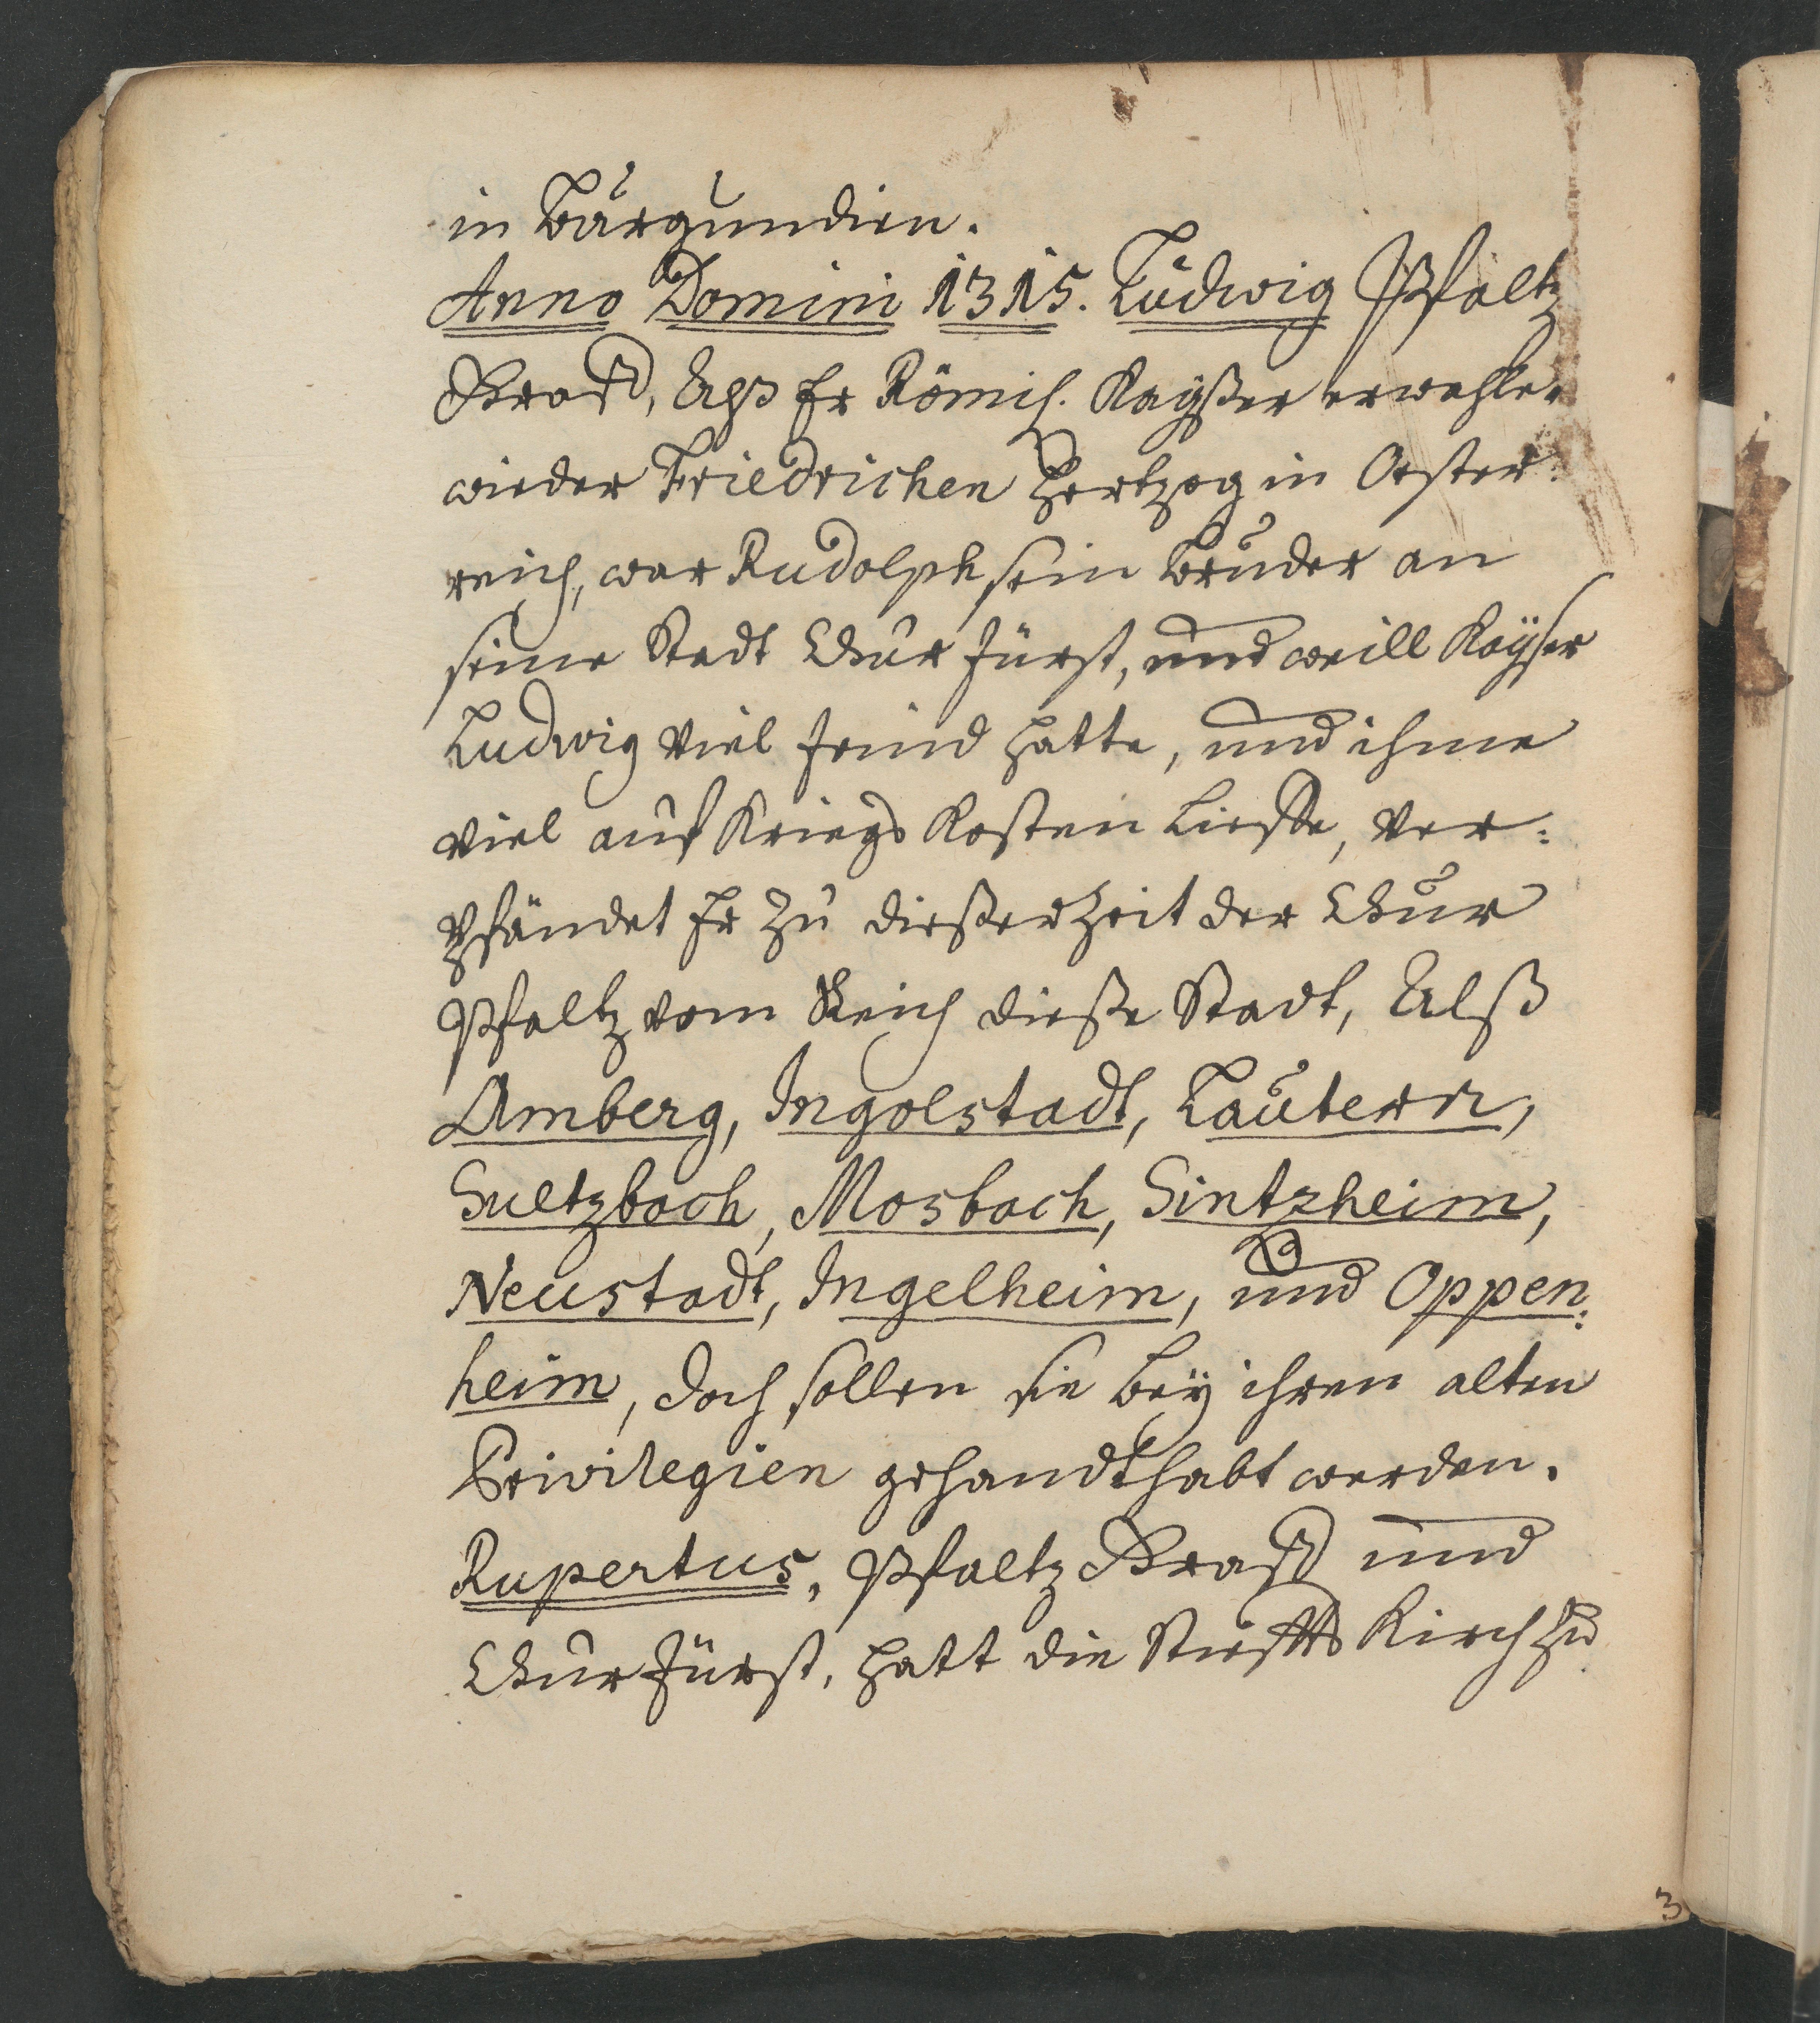 in Burgundien.
Anno Domini 1315. Ludwig Pfaltz
Graff, Alß Er Römisch. Kayßer erwehlet
wieder Friedrichen Hertzog in Oester:
reich, war Rudolph sein Bruder an
seine Stadt Chur Fürst, und weill Kayser
Ludwig viel Feind hatte, und ihme
viel auf Kriegs Kosten Lieffe, ver:
pfändet Er zu dießer Zeit der Chur
Pfaltz vom Reich dieße Stadt, Alß
Amberg, Ingolstadt, Lautern,
Sultzbach, Mosbach, Sintzheim,
Neustadt, Ingelheim, und Oppen:
heim, doch sollen sie bey ihren alten
Privilegien gehandthabt werden.
Rupertus, Pfaltz Graff und
Chur Fürst, hatt die Stiffts Kirch zu
3